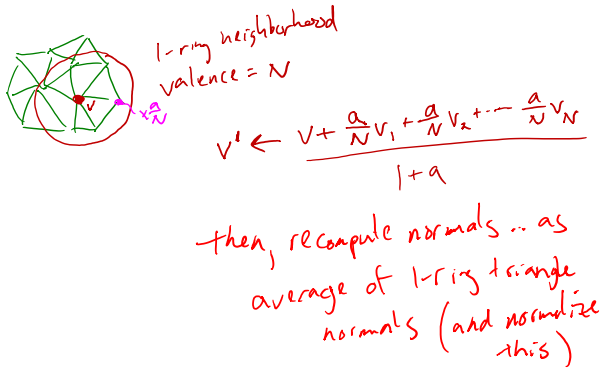 1-ring neighborhood
valence = N
V
x a/N
V' ← (V + a/N V₁ + a/N V₂ + ... a/N V_N) / (1 + a)
then, recompute normals... as
average of 1-ring triangle
normals (and normalize
this)